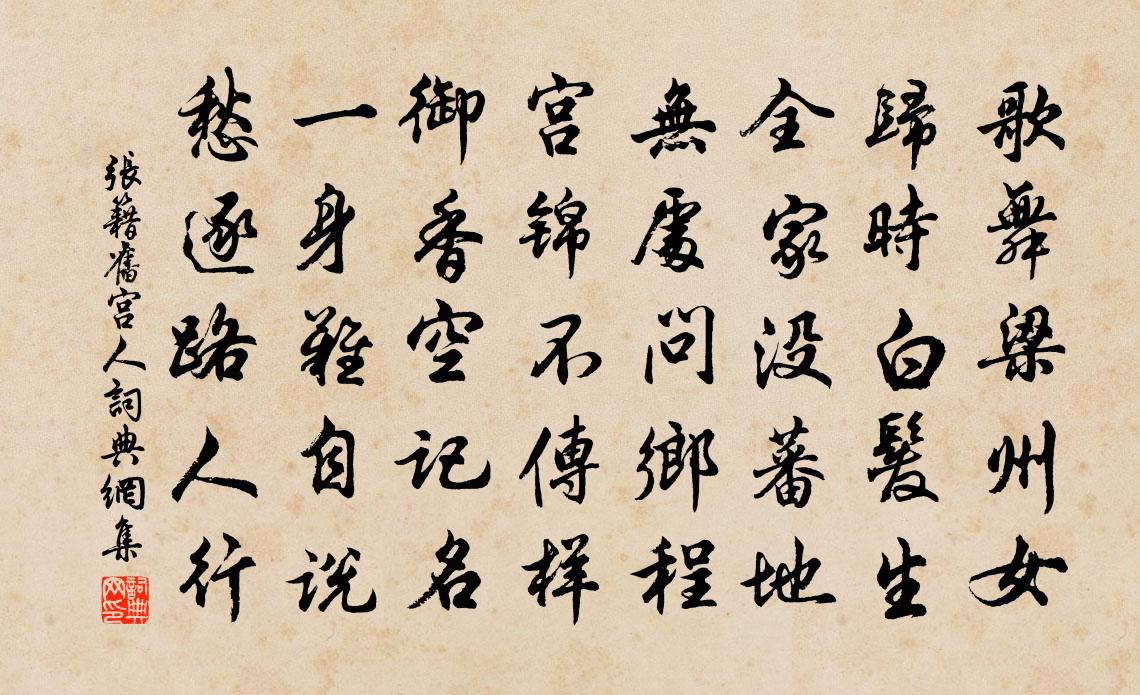 歌舞梁州女
歸時白髮生
全家没蕃地
無處問鄉程
宫錦不傳樣
御香空記名
一身難自說
愁逐路人行
張籍舊宫人詞典網集
詞典
网印